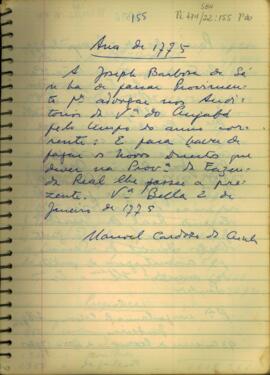 155
Anno de 1775
A Joseph Barbosa de Sá
ha de passar Provimen
to pª advogar nos Audi
torios da Vª do Cuyabá
pelo tempo do anno cor
rente; E para haver de
pagar os Novos Direitos que
dever na Provª da Fazen
da Real lhe passei a pre
zente. Vª Bella 2 de
Janeiro de 1775
Manoel Cardozo da